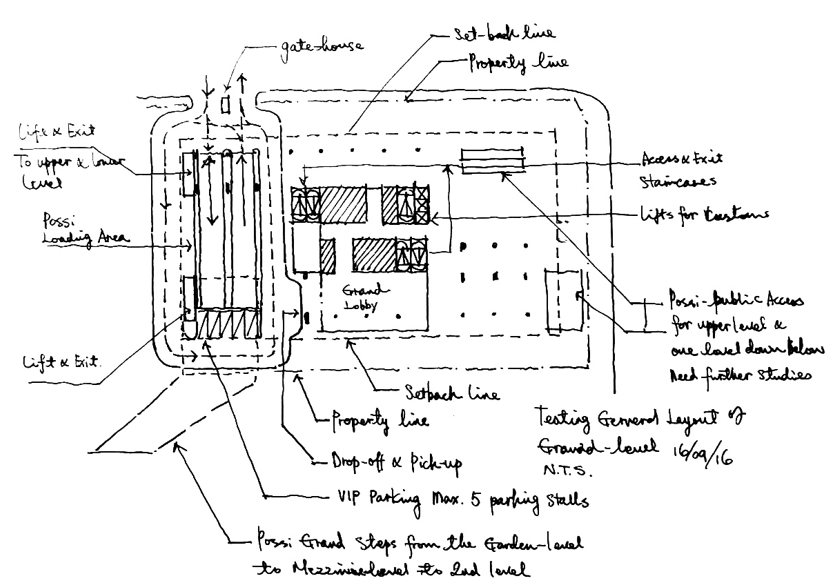 gate-house
Set-back line
Property line
Lift & Exit
To upper & lower
level
Access & Exit
Staircases
Possi
Loading Area
Lifts for Customs
Grand
Lobby
Possi-public Access
for upper level &
one level down below
Need further Studies
Lift & Exit.
Setback Line
Property line
Testing General Layout of
Ground-level 16/09/16
N.T.S.
Drop-off & Pick-up
VIP Parking Max. 5 parking Stalls
Possi Grand Steps from the Garden-level
to Mezzinine level to 2nd level